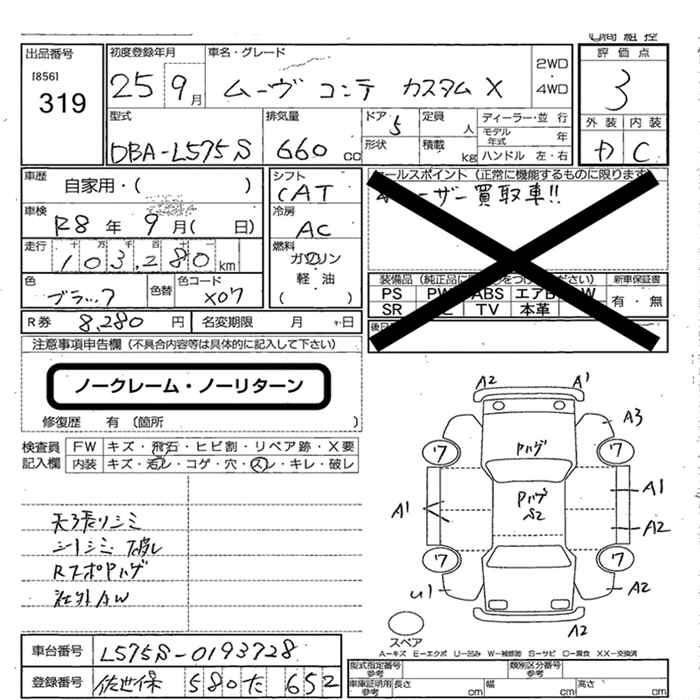 出品番号
[856]
319
初度登録年月
25 9月
車名・グレード
ムーヴ コンテ カスタム X
2WD
・
4WD
評価点
3
外装 内装
C
型式
DBA-L575S
排気量
660 cc
ドア 5
形状
定員 人
積載 kg
ディーラー・並行
モデル年式 年
ハンドル 左・右
車歴
自家用・( )
車検
R8年 9月( 日)
走行
十 万 千 百 十 一
103,280 km
色
ブラック
色替
色コード
X07
シフト
CAT
冷房
AC
燃料
ガソリン
軽油
( )
セールスポイント (正常に機能するものに限ります)
ユーザー買取車!!
装備品
新車保証書
PS
ABS
SR
TV 本革
有・無
R券 8,280 円
名変期限 月 日
注意事項申告欄 (不具合内容等は具体的に記入して下さい)
ノークレーム・ノーリターン
修復歴 有 (箇所 )
検査員記入欄
FW キズ・飛石・ヒビ割・リペア跡・X要
内装 キズ・汚レ・コゲ・穴・スレ・キレ・破レ
天張リシミ
シートシミ
RスポPハゲ
社外AW
A2 A1
A3
Pハゲ
ワ ワ
Pハゲ
S2
A1
A1
A2
ワ ワ
U1
A2
A2
スペア
A-キズ E-エクボ U-凹み W-補修跡 S-サビ C-腐食 XX-交換済
車台番号 L575S-0193728
登録番号 佐世保 580 た 652
型式指定番号
参考
類別区分番号
参考
車庫証明用
参考
長さ cm
幅 cm
高さ cm